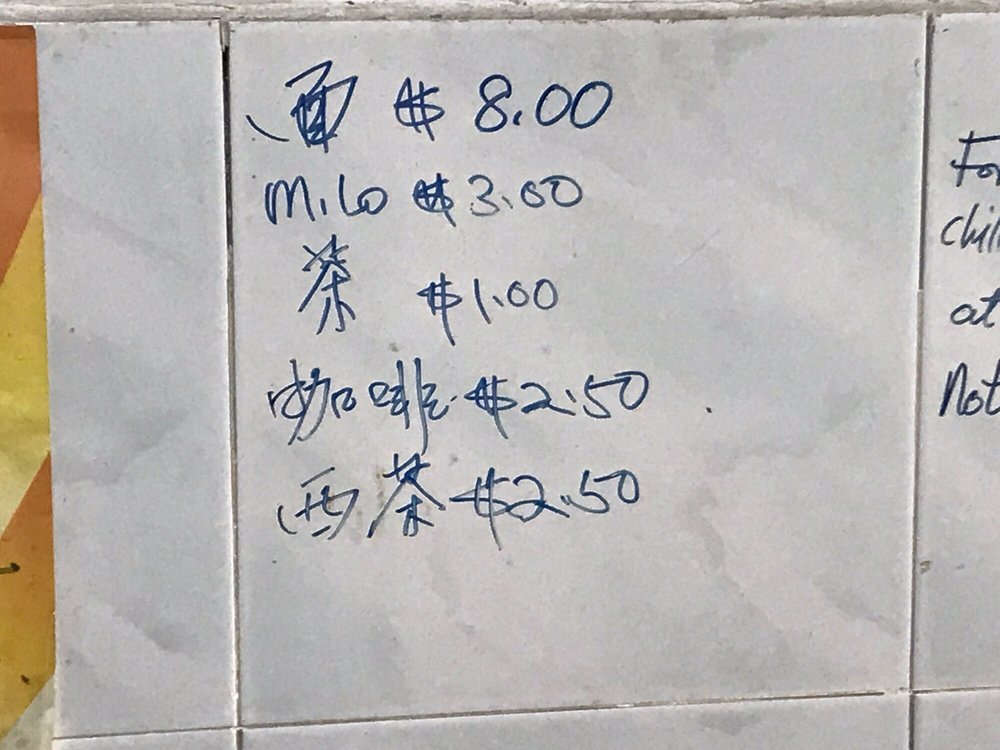 面 $8.00
Milo $3.00
茶 $1.00
咖啡 $2.50
西茶 $2.50
For
chil
at
Not